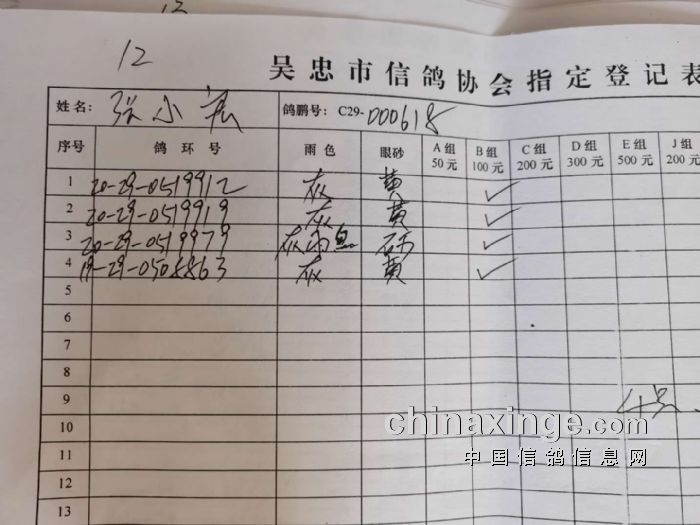 12
吴忠市信鸽协会指定登记表
姓名: 张小 鸽鹏号: C29-000618
序号 鸽环号 雨色 眼砂 A组 50元 B组 100元 C组 200元 D组 300元 E组 500元 J组 200元
1 20-29-0519912 灰 黄 ✓
2 20-29-0519919 灰 黄 ✓
3 20-29-0519979 灰雨 砂 ✓
4 19-29-0508863 灰 黄 ✓
5
6
7
8
9
10
11
12
13
chinaxinge.com
中国信鸽信息网